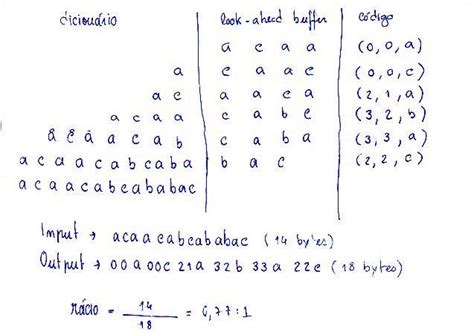 dicionário look-ahead buffer código
a c a a (0,0,a)
a c a a c (0,0,c)
a c a a c a (2,1,a)
a c a a c a b c (3,2,b)
a c a a c a b c a b a (3,3,a)
a c a a c a b c a b a b a c (2,2,c)
a c a a c a b c a b a b a c
Input → acaacabcababac (14 bytes)
Output → 00a 00c 21a 32b 33a 22c (18 bytes)
rácio = 14/18 = 0,77:1